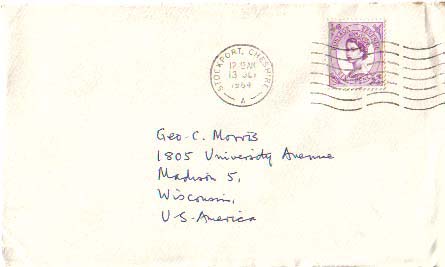 STOCKPORT, CHESHIRE
13
1964
A
Geo. C. Morris
1805 University Avenue
Madison 5,
Wisconsin,
U.S. America